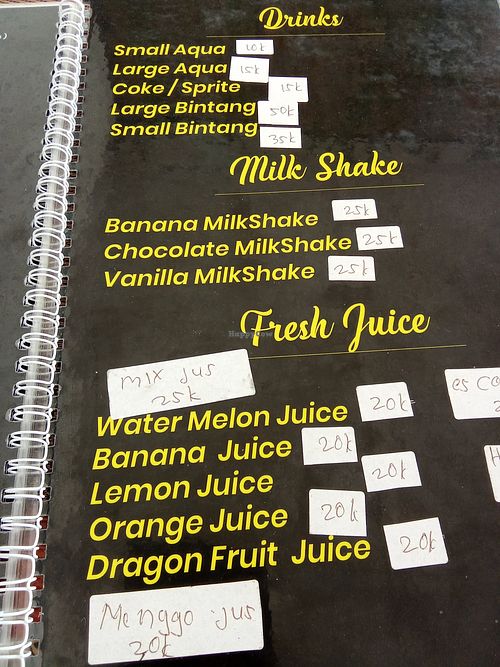 Drinks
Small Aqua 10k
Large Aqua 15k
Coke / Sprite 15k
Large Bintang 50k
Small Bintang 35k
Milk Shake
Banana MilkShake 25k
Chocolate MilkShake 25k
Vanilla MilkShake 25k
HappyCow
Fresh Juice
mix jus
25k
Water Melon Juice 20k
es co
Banana Juice 20k
Lemon Juice 20k
Orange Juice 20k
Dragon Fruit Juice 20k
Menggo jus
20k